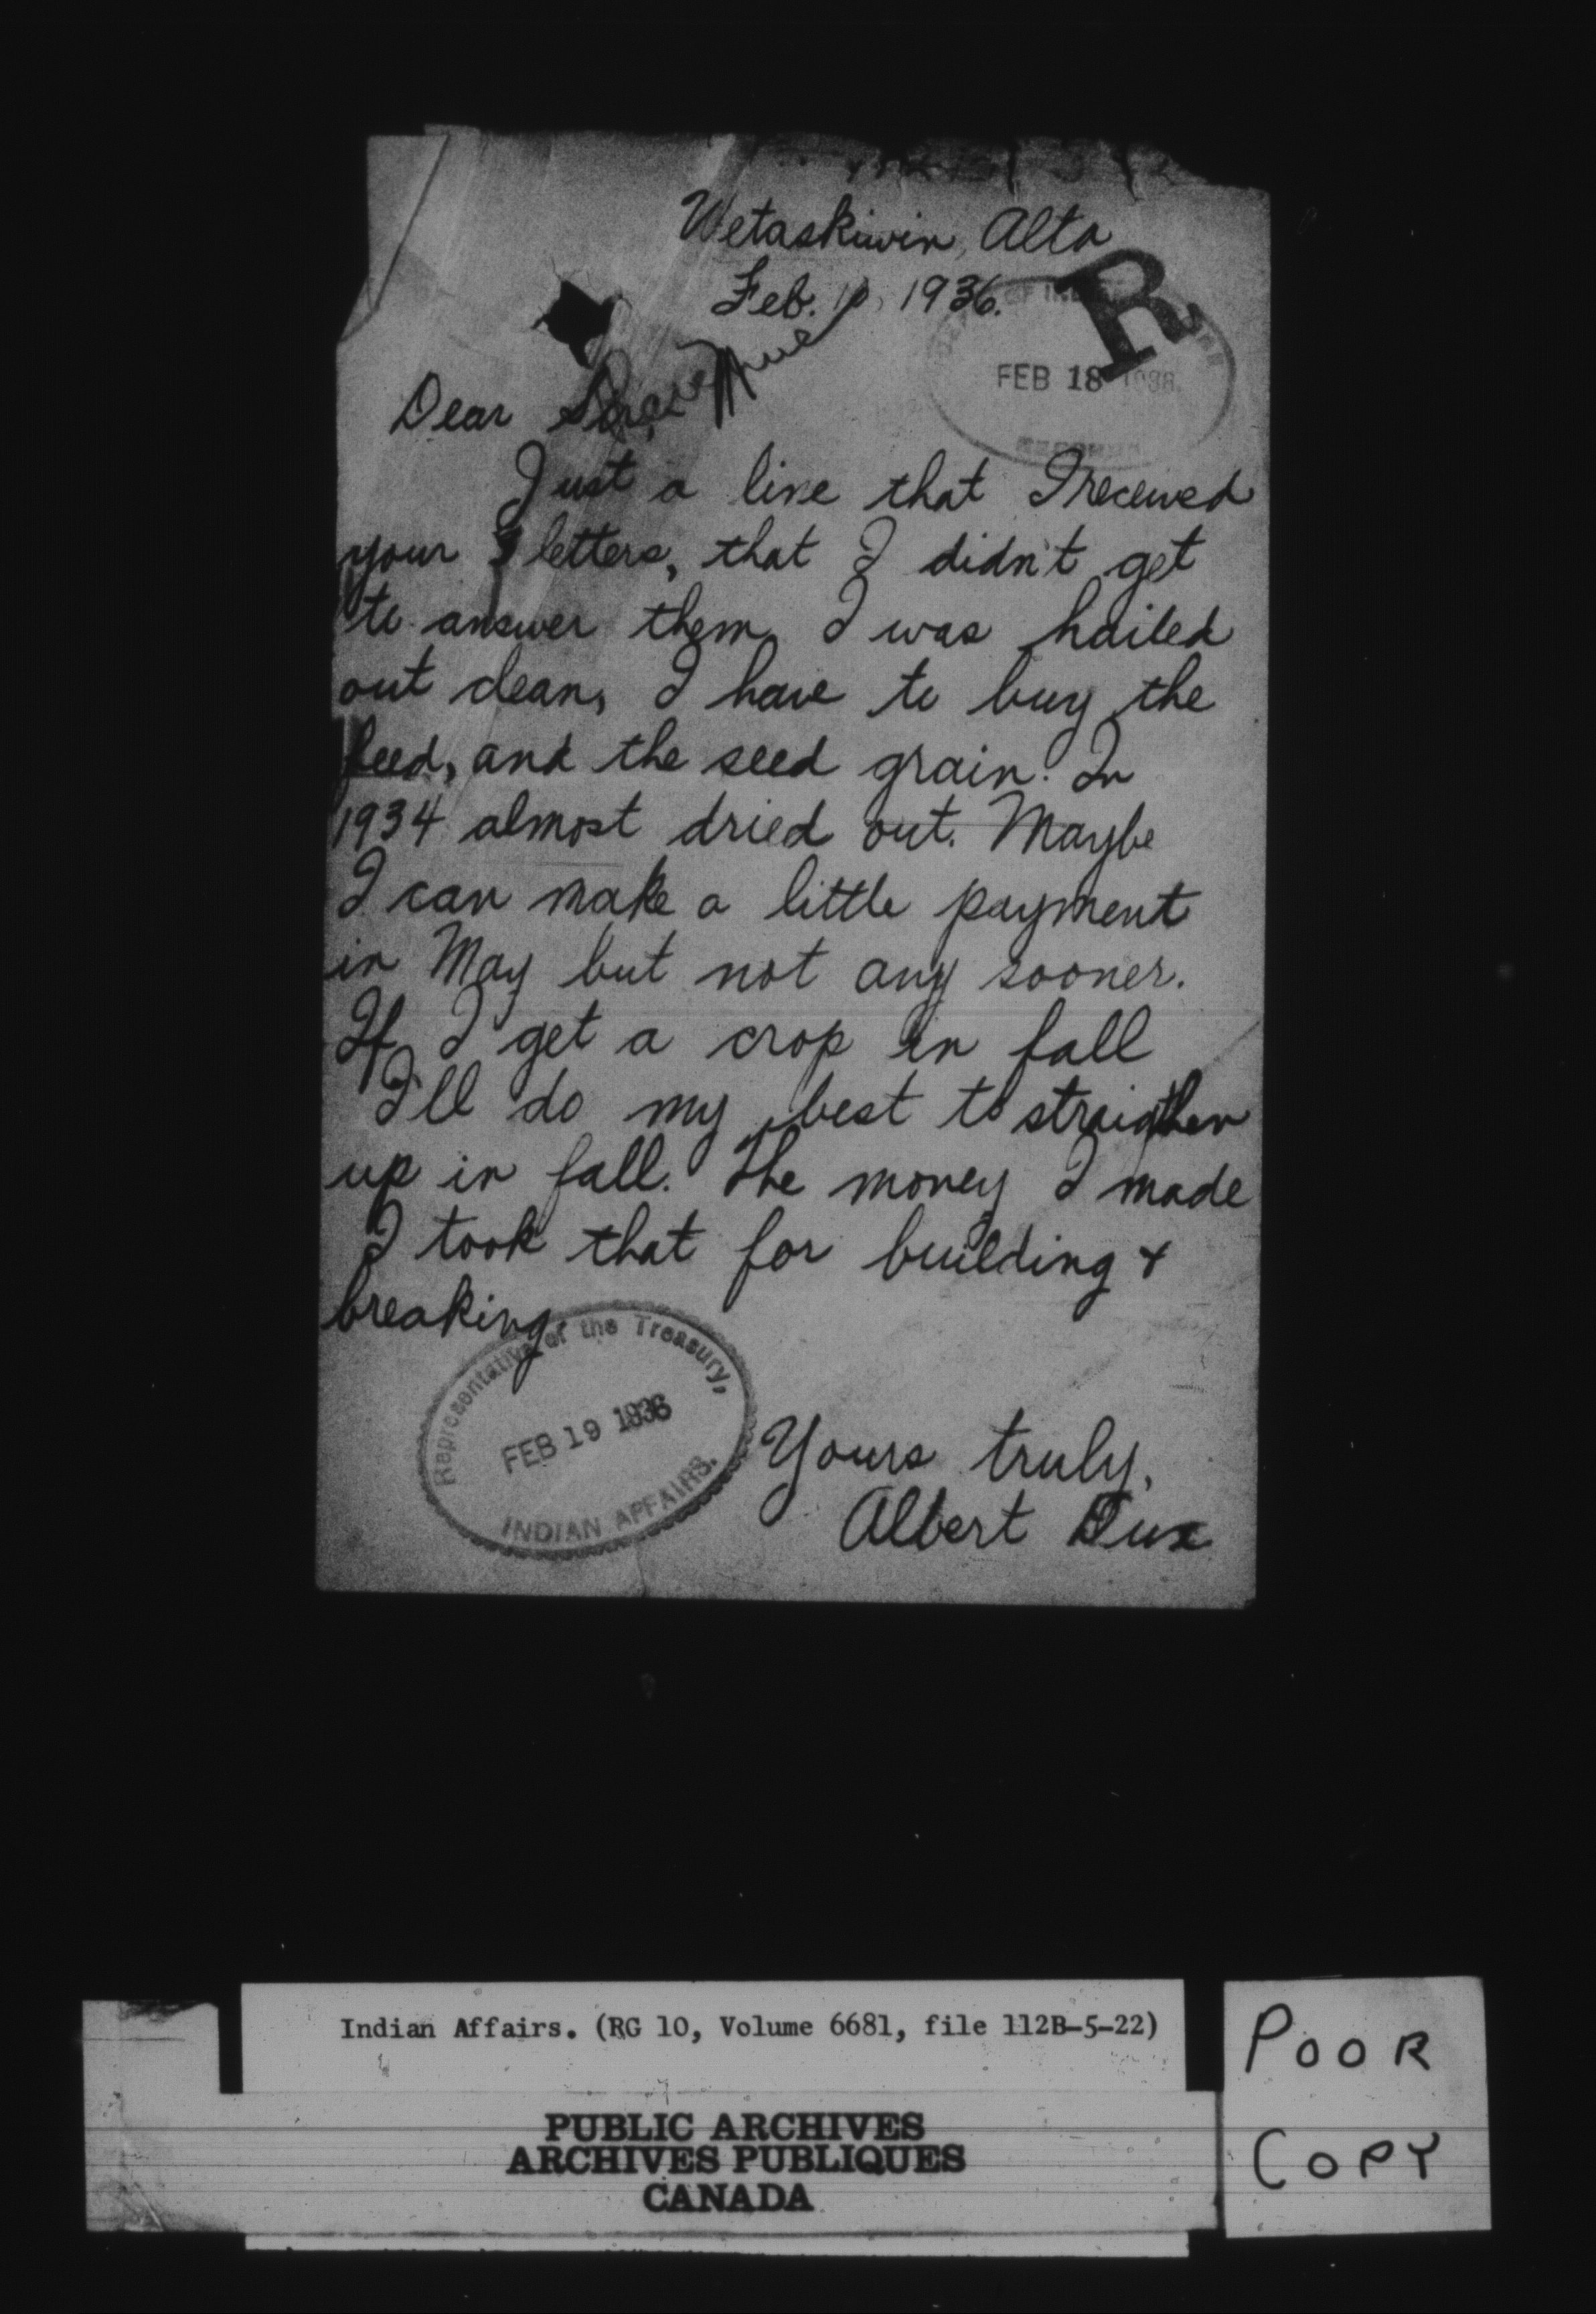 Wetaskiwin, Alta
Feb. 10, 1936.
R
FEB 18 1936
Dear Sir,
Just a line that I received
your letters, that I didn't get
to answer them, I was hailed
out clean, I have to buy the
feed, and the seed grain. In
1934 almost dried out. Maybe
I can make a little payment
in May but not any sooner.
If I get a crop in fall
I'll do my best to straigthen
up in fall. The money I made
I took that for building +
breaking.
Representative of the Treasury,
FEB 19 1936
INDIAN AFFAIRS.
Yours truly,
Albert Dux
Indian Affairs. (RG 10, Volume 6681, file 112B-5-22)
POOR
COPY
PUBLIC ARCHIVES
ARCHIVES PUBLIQUES
CANADA